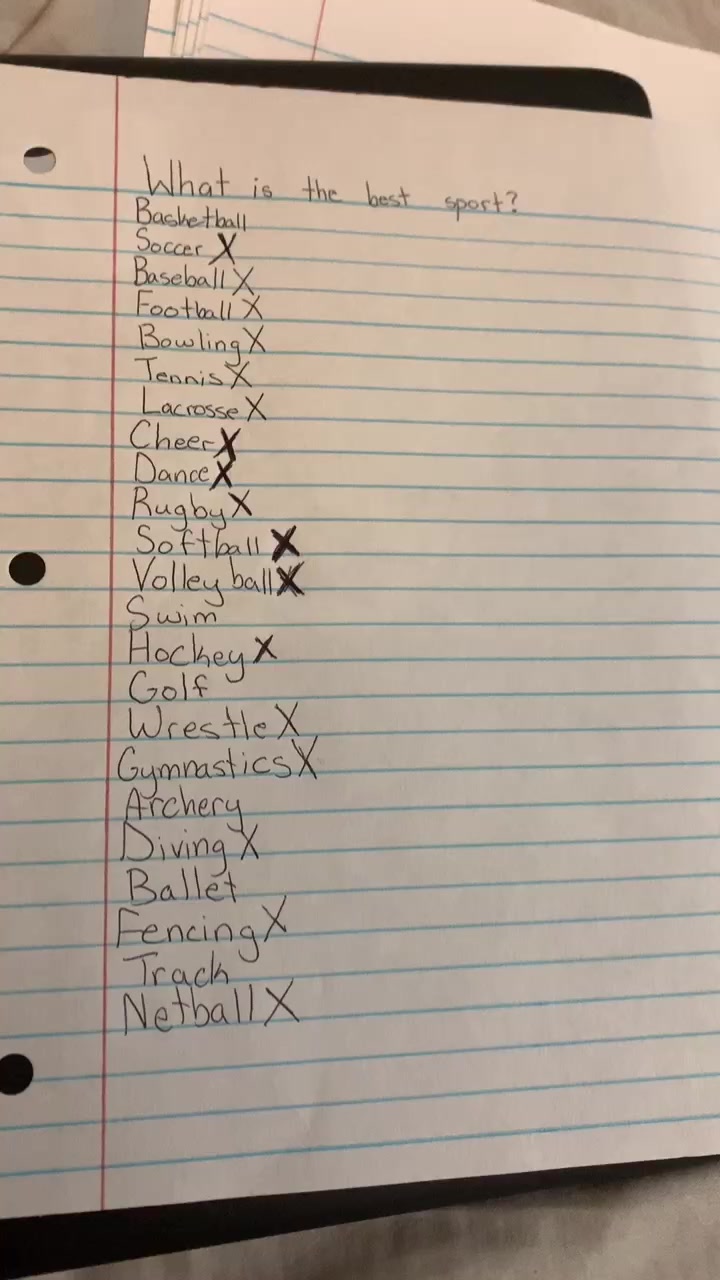 What is the best sport?
Basketball
Soccer X
Baseball X
Football X
Bowling X
Tennis X
Lacrosse X
Cheer X
Dance X
Rugby X
Softball X
Volley ball X
Swim
Hockey X
Golf
Wrestle X
Gymnastics X
Archery
Diving X
Ballet
Fencing X
Track
Netball X